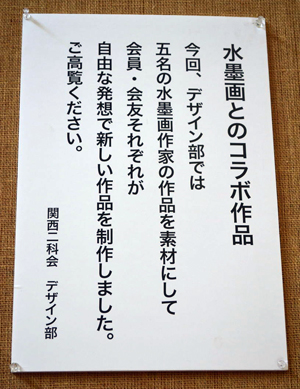 水墨画とのコラボ作品
今回、デザイン部では
五名の水墨画作家の作品を素材にして
会員・会友それぞれが
自由な発想で新しい作品を制作しました。
ご高覧ください。
関西二科会　デザイン部